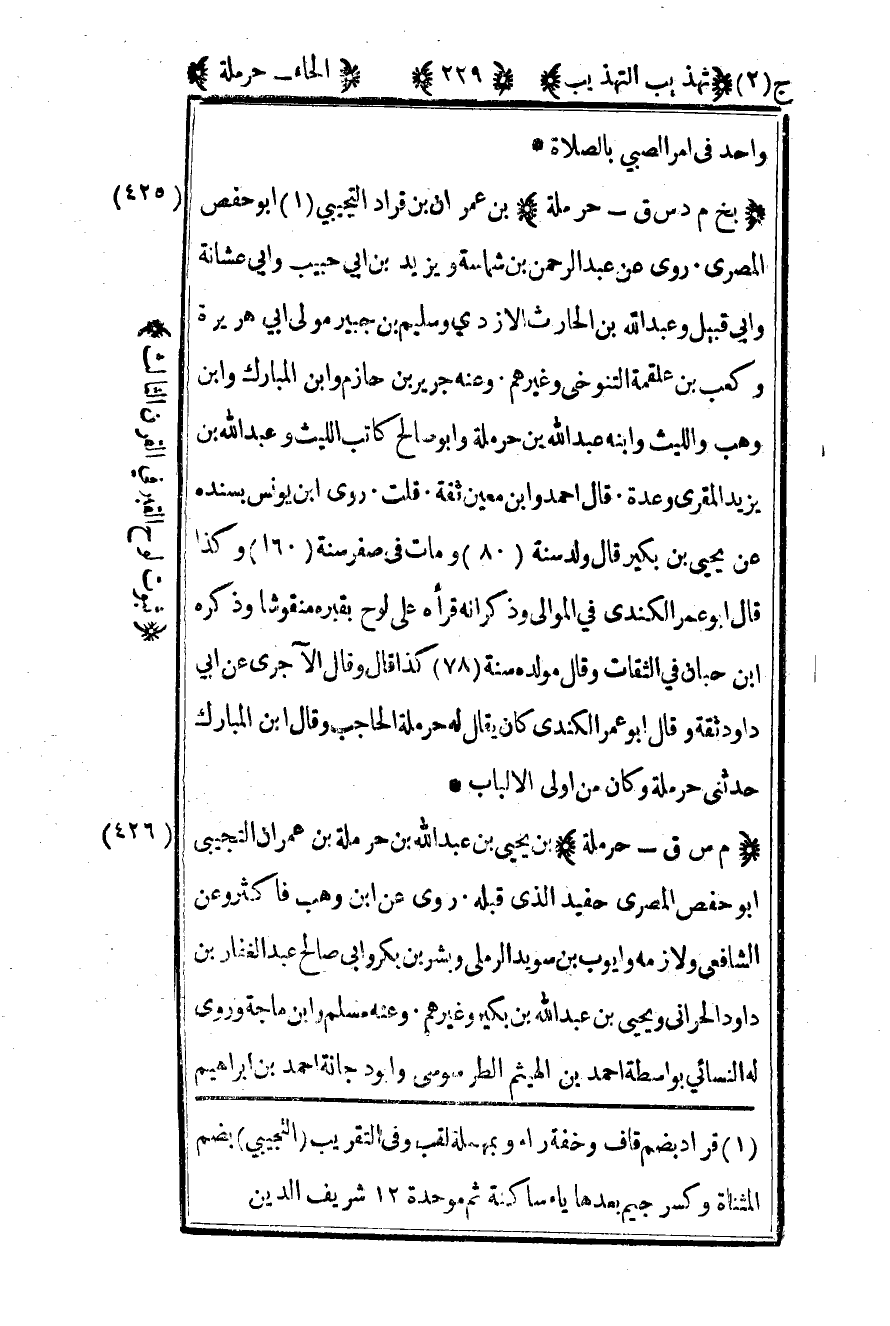 ج(٢) ﴿تهذيب التهذيب﴾ ﴿٢٢٩﴾ ﴿الحاء ـ حرملة﴾
واحد فى امر الصبي بالصلاة *
(٤٢٥) ﴿بخ م د س ق ـ حرملة﴾ بن عمران بن قراد التجيبي (١) ابو حفص
المصرى ٠ روى عن عبد الرحمن بن شماسة ويزيد بن ابي حبيب وابي عشانة
وابي قبيل وعبد الله بن الحارث الازدي وسليم بن جبير مولى ابي هريرة
وكعب بن علقمة التنوخى وغيرهم ٠ وعنه جرير بن حازم وابن المبارك وابن
وهب والليث وابنه عبد الله بن حرملة وابو صالح كاتب الليث وعبد الله بن
يزيد المقرى وعدة ٠ قال احمد وابن معين ثقة ٠ قلت ٠ روى ابن يونس بسنده
عن يحيى بن بكير قال ولد سنة (٨٠) ومات فى صفر سنة (١٦٠) وكذا
قال ابو عمر الكندى في الموالى وذكر انه قرأه على لوح بقبره منقوشا وذكره
ابن حبان في الثقات وقال مولده سنة (٧٨) كذا قال وقال الآجرى عن ابي
داود ثقة وقال ابو عمر الكندى كان يقال له حرملة الحاجب وقال ابن المبارك
حدثنى حرملة وكان من اولى الالباب *
﴿ثبوت لوح القبر في القرن الثالث﴾
(٤٢٦) ﴿م س ق ـ حرملة﴾ بن يحيى بن عبد الله بن حرملة بن عمران التجيبى
ابو حفص المصرى حفيد الذى قبله ٠ روى عن ابن وهب فاكثر وعن
الشافعي ولازمه وايوب بن سويد الرملى وبشر بن بكر وابى صالح عبد الغفار بن
داود الحرانى ويحيى بن عبد الله بن بكير وغيرهم ٠ وعنه مسلم وابن ماجة وروى
له النسائي بواسطة احمد بن الهيثم الطرسوسى وابو دجانة احمد بن ابراهيم
(١) قراد بضم قاف وخفة راء وبمهملة لقب وفى التقريب (التجيبي) بضم
المثناة وكسر جيم بعدها ياء ساكنة ثم موحدة ١٢ شريف الدين